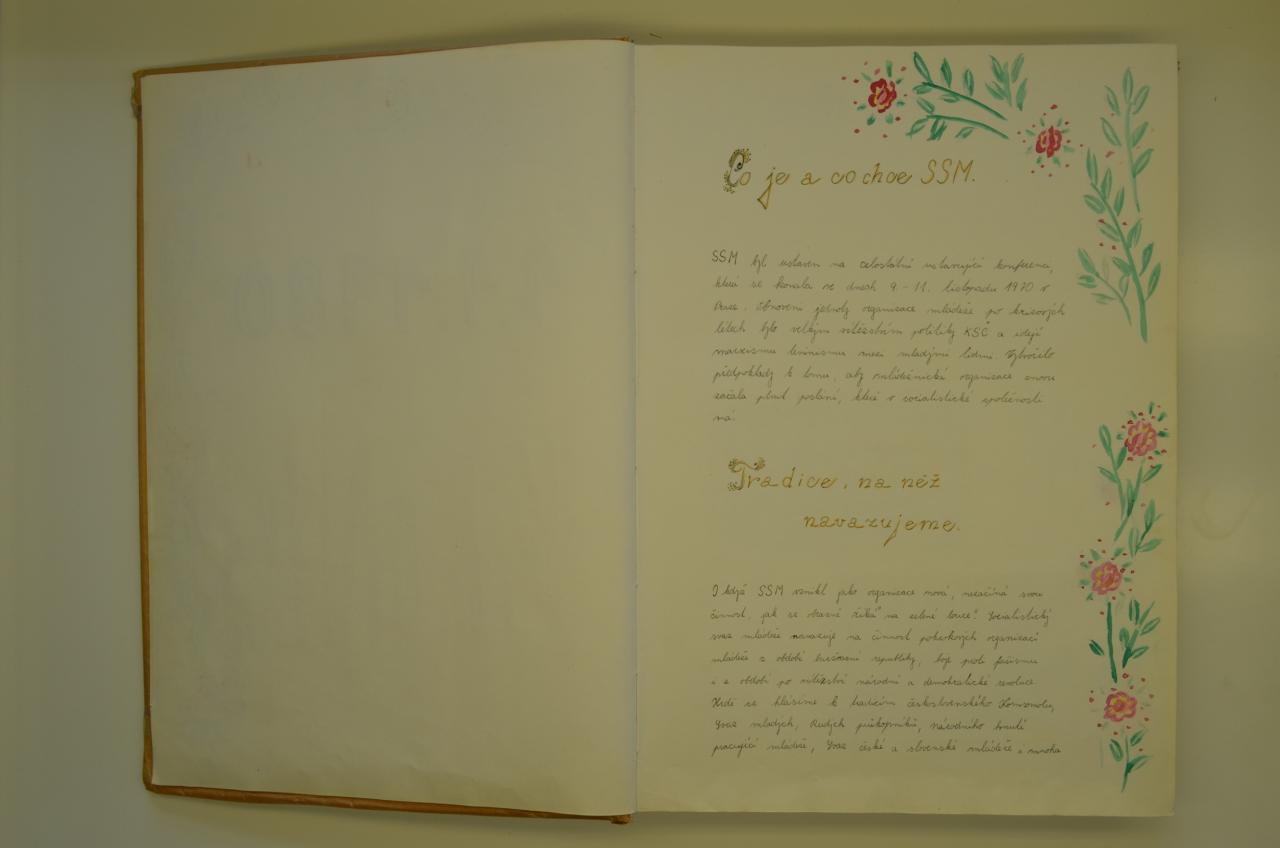 Co je a co chce SSM.
SSM byl ustaven na celostátní ustavující konferenci,
která se konala ve dnech 9. - 11. listopadu 1970 v
Praze. Obnovení jednoty organizace mládeže po krizových
létech bylo velkým vítězstvím politiky KSČ a idejí
marxismu leninismu mezi mladými lidmi. Vytvořilo
předpoklady k tomu, aby mládežnická organizace znovu
začala plnit poslání, které v socialistické společnosti
má.
Tradice, na něž
navazujeme.
I když SSM vznikl jako organizace nová, nezačíná svou
činnost, jak se obrazně říká "na zelené louce". Socialistický
svaz mládeže navazuje na činnost pokrokových organizací
mládeže z období buržoazní republiky, boje proti fašismu
i z období po vítězství národní a demokratické revoluce
Hrdě se hlásíme k tradicím československého Komsomolu,
Svaz mladých, Rudých průkopníků, Národního hnutí
pracující mládeže, Svaz české a slovenské mládeže a mnoha